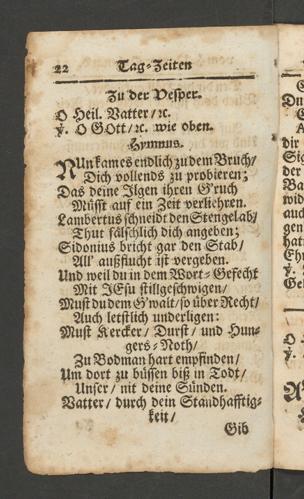 22 Tag-Zeiten
Zu der Vesper.
O Heil. Vatter/ꝛc.
℣. O GOtt/ꝛc. wie oben.
Hymnus.
NUn kames endlich zu dem Bruch/
Dich vollends zu probieren;
Das deine Ilgen ihren G'ruch
Müsst auf ein Zeit verliehren.
Lambertus schneidt den Stengel ab/
Thut fälschlich dich angeben;
Sidonius bricht gar den Stab/
All' außflucht ist vergeben.
Und weil du in dem Wort-Gefecht
Mit JEsu stillgeschwigen/
Must du dem G'walt/so über Recht/
Auch letstlich underligen:
Must Kercker/ Durst/ und Hun-
gers-Noth/
Zu Bodman hart empfinden/
Um dort zu büssen biß in Todt/
Unser/ nit deine Sünden.
Vatter/ durch dein Standhafftig-
keit/
Gib